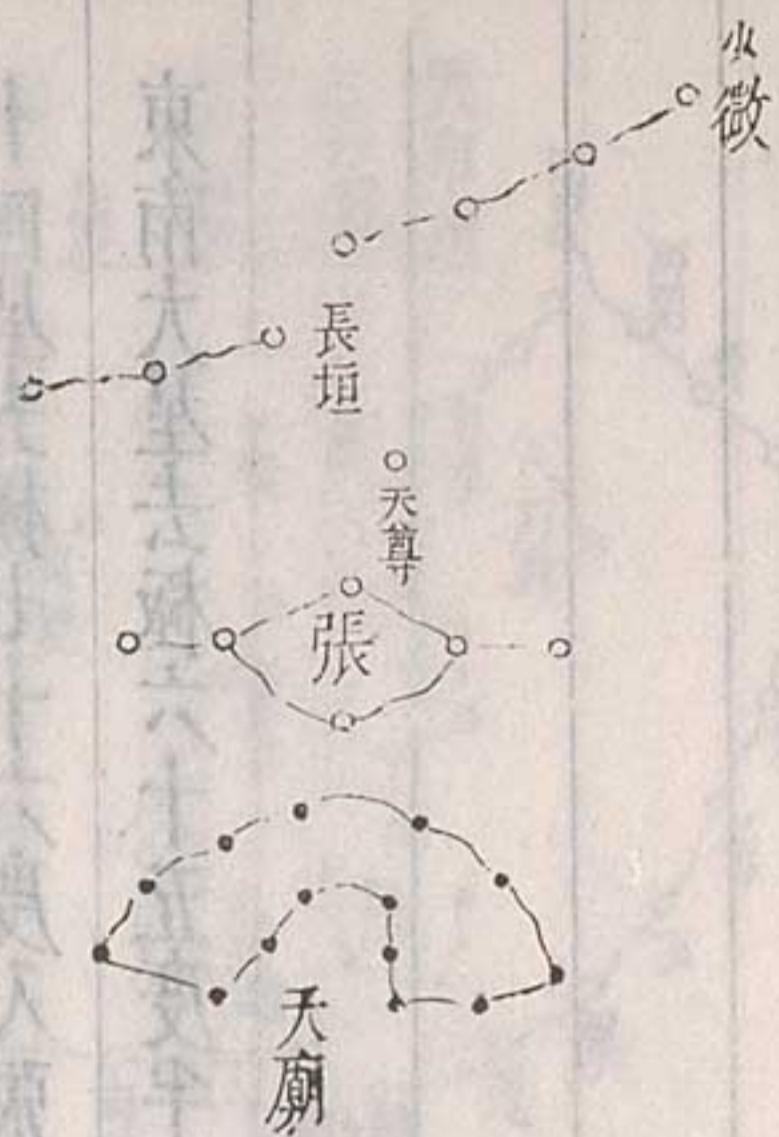 少微
長垣
天尊
張
天廟